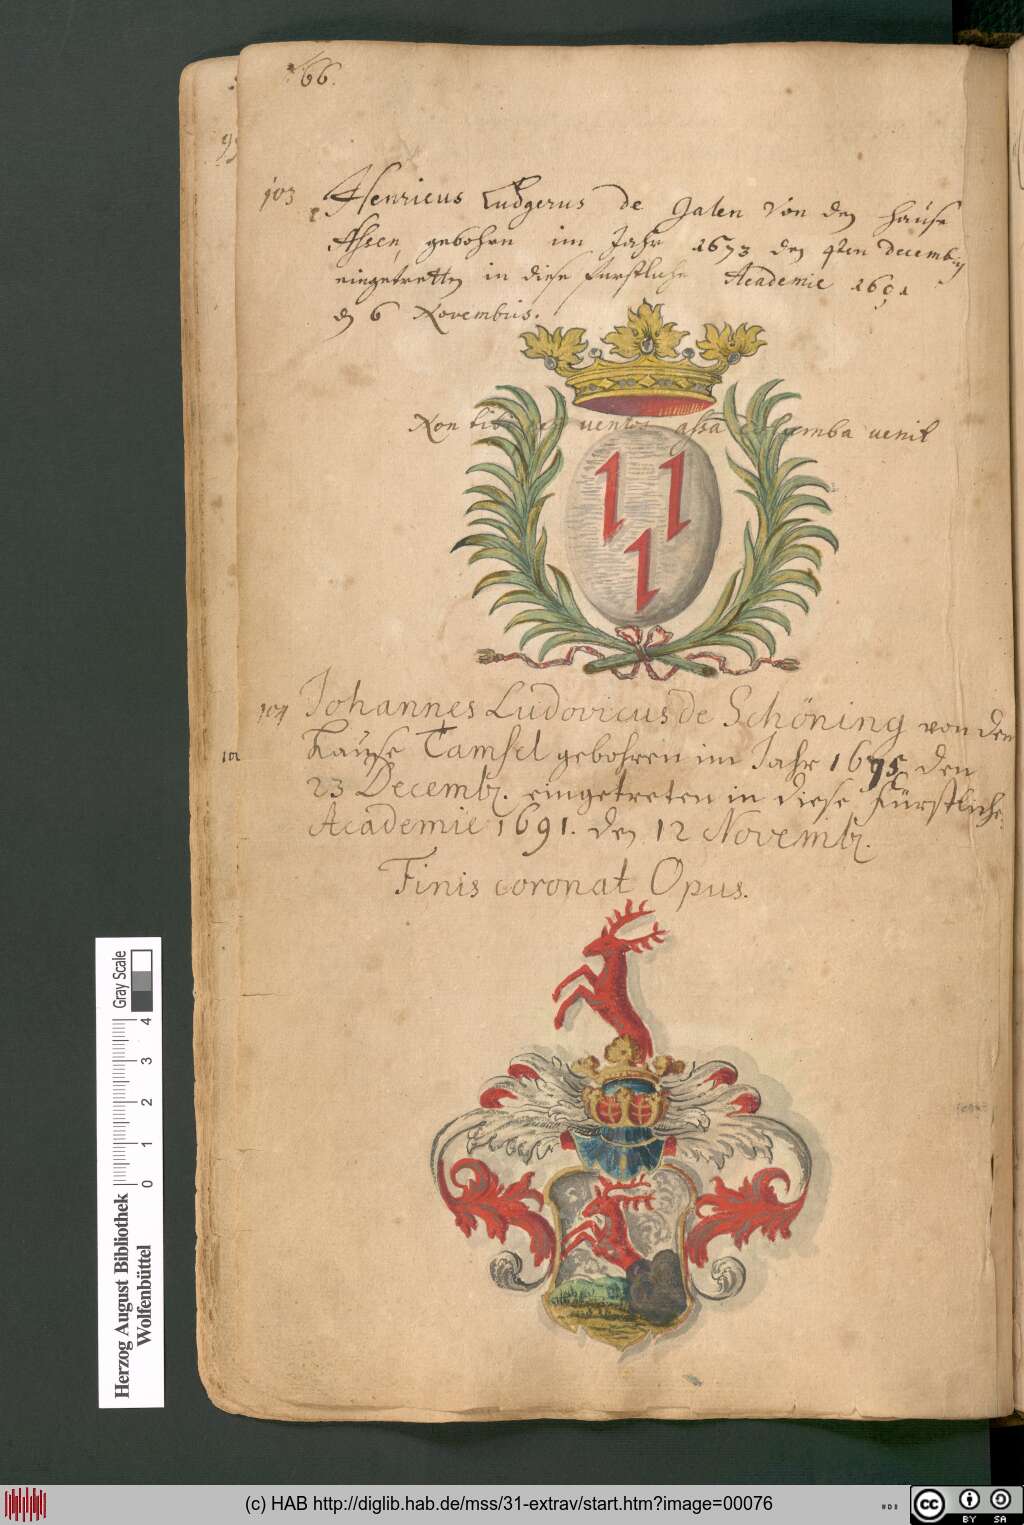 66.
103 Henricus Ludgerus de Galen Von den Hause
Assen, gebohren im Jahr 1673 den 4ten decemb:
eingetretten in diese furstliche Academie 1691
den 6 Novembris.
Non tibi ventos assa columba venit
104 Johannes Ludovicus de Schöning von den
Hause Tamsel gebohren im Jahr 1675 den
101
23 Decembr. eingetreten in diese Fürstliche
Academie 1691. den 12 Novembr.
Finis coronat Opus.
Herzog August Bibliothek
Wolfenbüttel
0 1 2 3 4 Gray Scale
(c) HAB http://diglib.hab.de/mss/31-extrav/start.htm?image=00076
WDB
cc BY SA